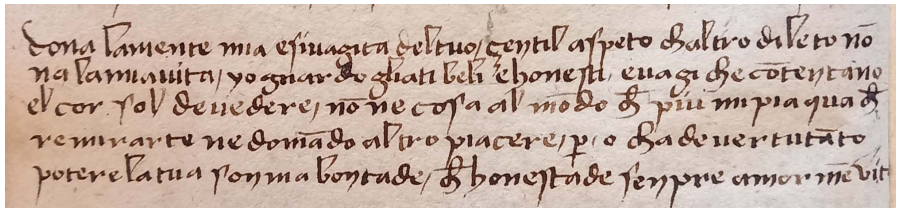 dona lamente mia esivagita deltuo, gentil aspeto chaltro dileto nō
na lamiavita, yo guardo gliati beli e honesti, evagi che cōtentano
el cor sol devedere, nō ne cosa al mōdo ch̄ piu mi pia qua ch̄
remirarte ne domādo altro piacere, p̱, o cha de vertu tāto
potere latua somma bontade, ch̄ honestade senpre amor mēvit